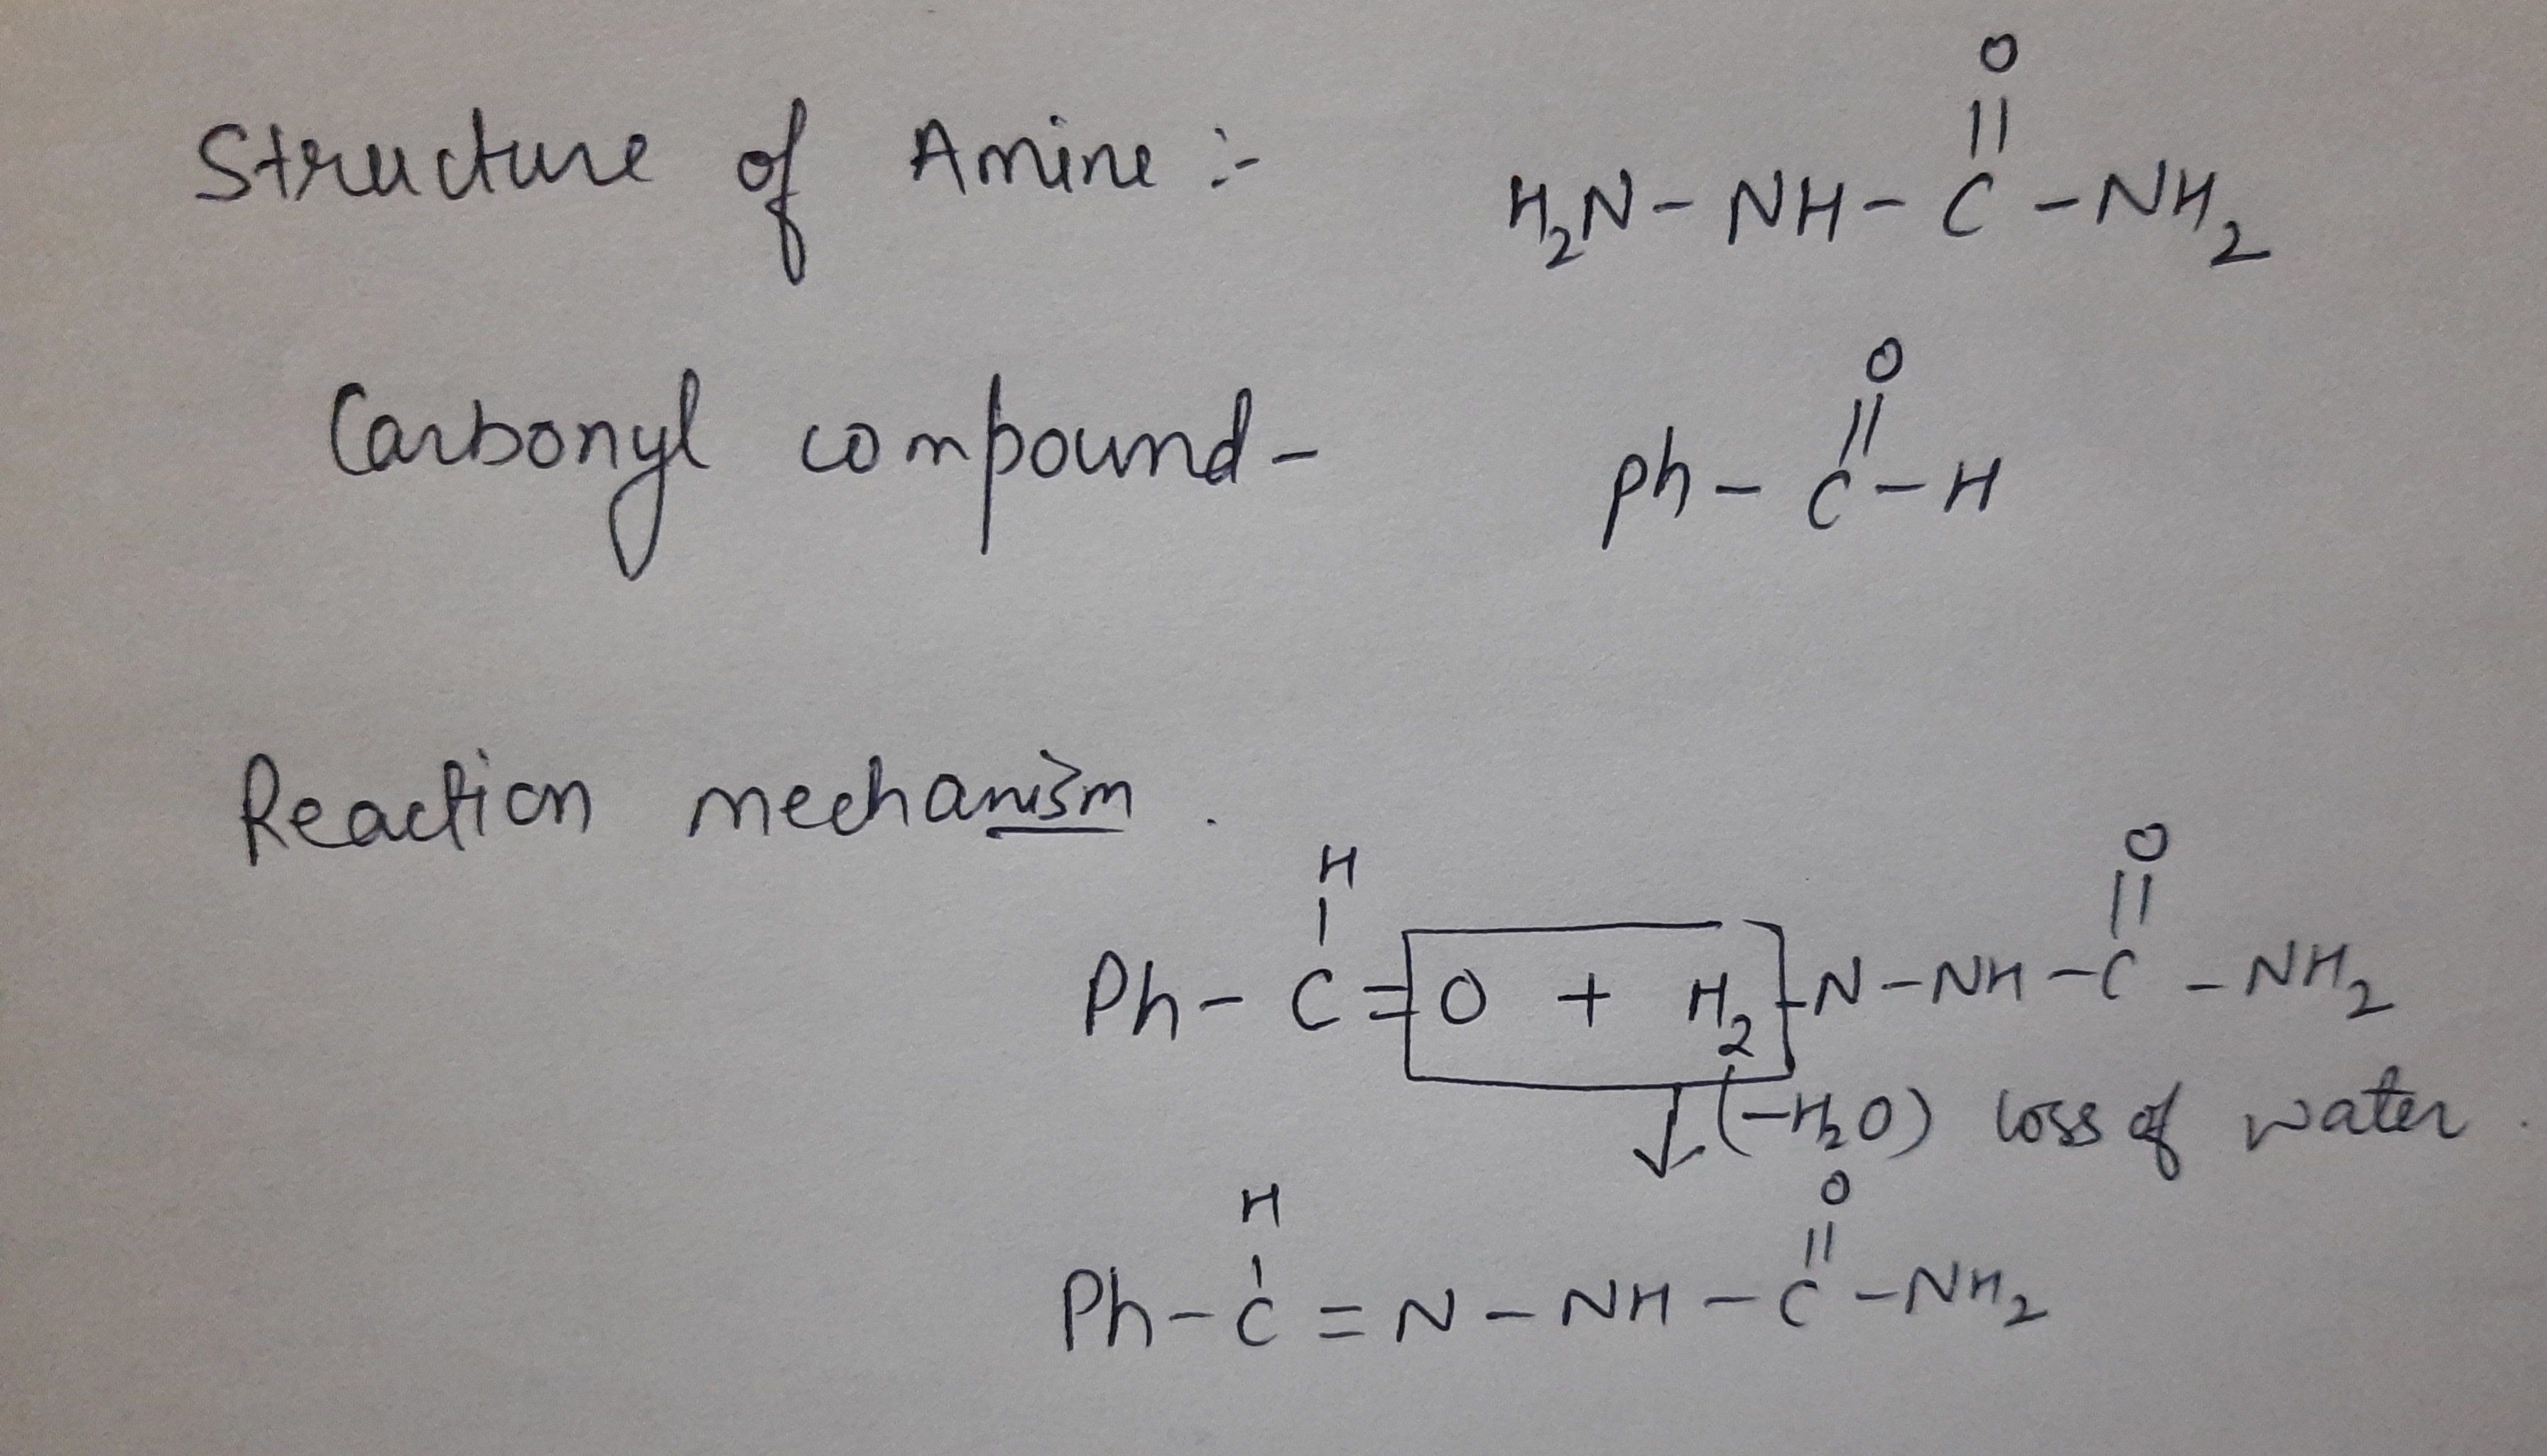 O
||
Structure of Amine :- H₂N - NH - C - NH₂
O
||
Carbonyl compound - ph - C - H
Reaction mechanism .
H O
| ||
Ph - C = O + H₂ - N - NH - C - NH₂
(-H₂O) loss of water .
H O
| ||
Ph - C = N - NH - C - NH₂